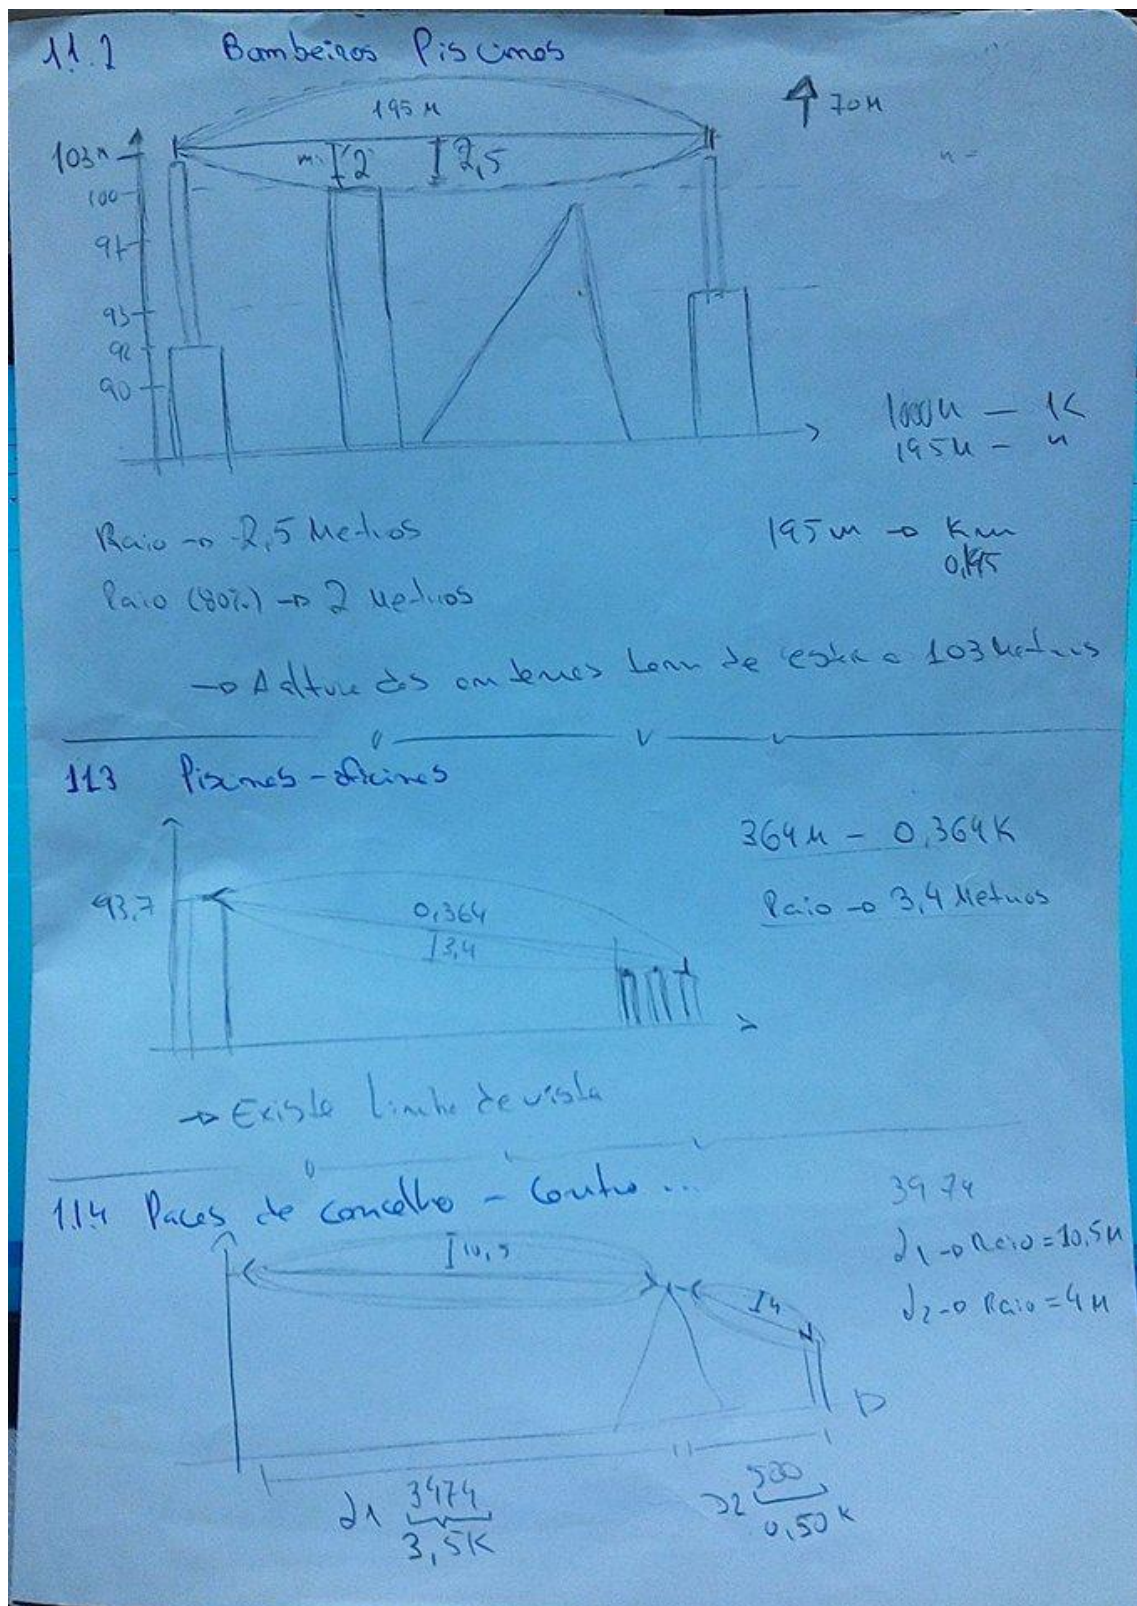 1.1.2 Bombeiros Piscinas
195 M
70M
103m
m: 2 2,5
100
97
93
92
90
1000M — 1K
195M — x
Raio → 2,5 Metros
195 m → Km
0,195
Raio (80%) → 2 Metros
→ A altura das antenas tem de estar a 103 Metros
113 Piscinas - oficinas
364M — 0,364K
Raio → 3,4 Metros
93,7
0,364
3,4
→ Existe linha de vista
1.1.4 Paços de concelho - Centro ...
3974
d1 → Raio = 10,5M
d2 → Raio = 4M
10,5
4
d1 3474
3,5K
d2 500
0,50K